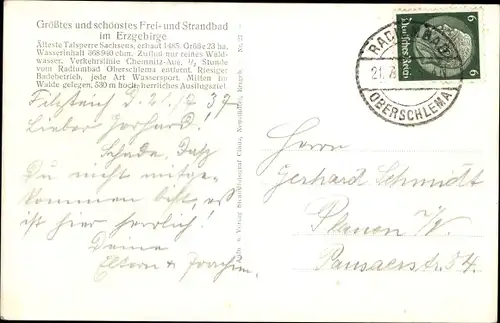 Größtes und schönstes Frei- und Strandbad
im Erzgebirge
Älteste Talsperre Sachsens, erbaut 1485. Größe 23 ha.
Wasserinhalt 868940 cbm. Zufluß nur reines Wald-
wasser. Verkehrslinie Chemnitz-Aue, ½ Stunde
vom Radiumbad Oberschlema entfernt. Riesiger
Badebetrieb, jede Art Wassersport. Mitten im
Walde gelegen, 530 m hoch, herrliches Ausflugsziel
Filzteich D. 21./7. 37
Lieber Gerhard!
Schade, daß
Du nicht mitge-
kommen bist, es
ist hier herrlich!
Deine
Eltern + Joachim.
RADIUMBAD
21.7.
OBERSCHLEMA
6 Deutsches Reich 6
Herrn
Gerhard Schmidt
Plauen i/V.
Pausaerstr. 84.